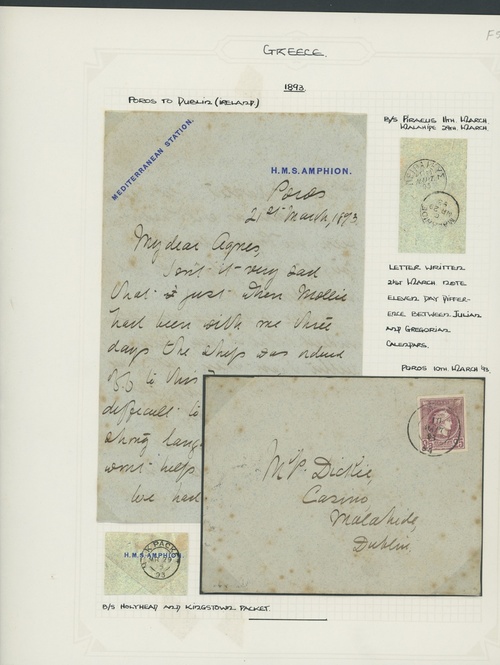 GREECE.
1893.
POROS TO DUBLIN (IRELAND)
B/S PIRAEUS 11TH MARCH
MALAHIDE 29TH MARCH
MEDITERRANEAN STATION.
H.M.S. AMPHION.
Poros
21st March, 1893.
My dear Agnes,
Isn't it very sad
that just when Mollie
had been with me three
days the ship was ordered
difficult to
strong
won't help
We had
LETTER WRITTEN
21ST MARCH NOTE
ELEVEN DAY DIFFER-
ENCE BETWEEN JULIAN
AND GREGORIAN
CALENDARS.
POROS 10TH MARCH 93.
25 25
Mrs P. Dickie,
Casino
Malahide,
Dublin.
H.M.S. AMPHION.
PACKET
93
B/S HOLYHEAD AND KINGSTOWN PACKET.